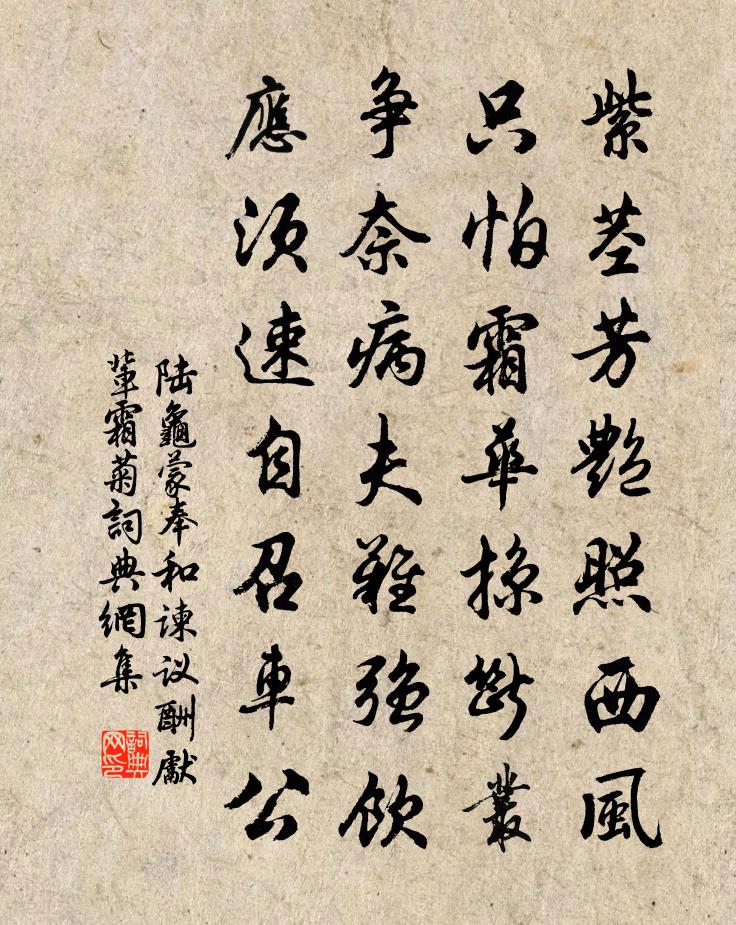 紫茎芳艷照西風
只怕霜華掠斷叢
争奈病夫難強飲
應須速自召車公
陆龜蒙奉和諫议酬獻
輩霜菊詞典網集
詞典网印